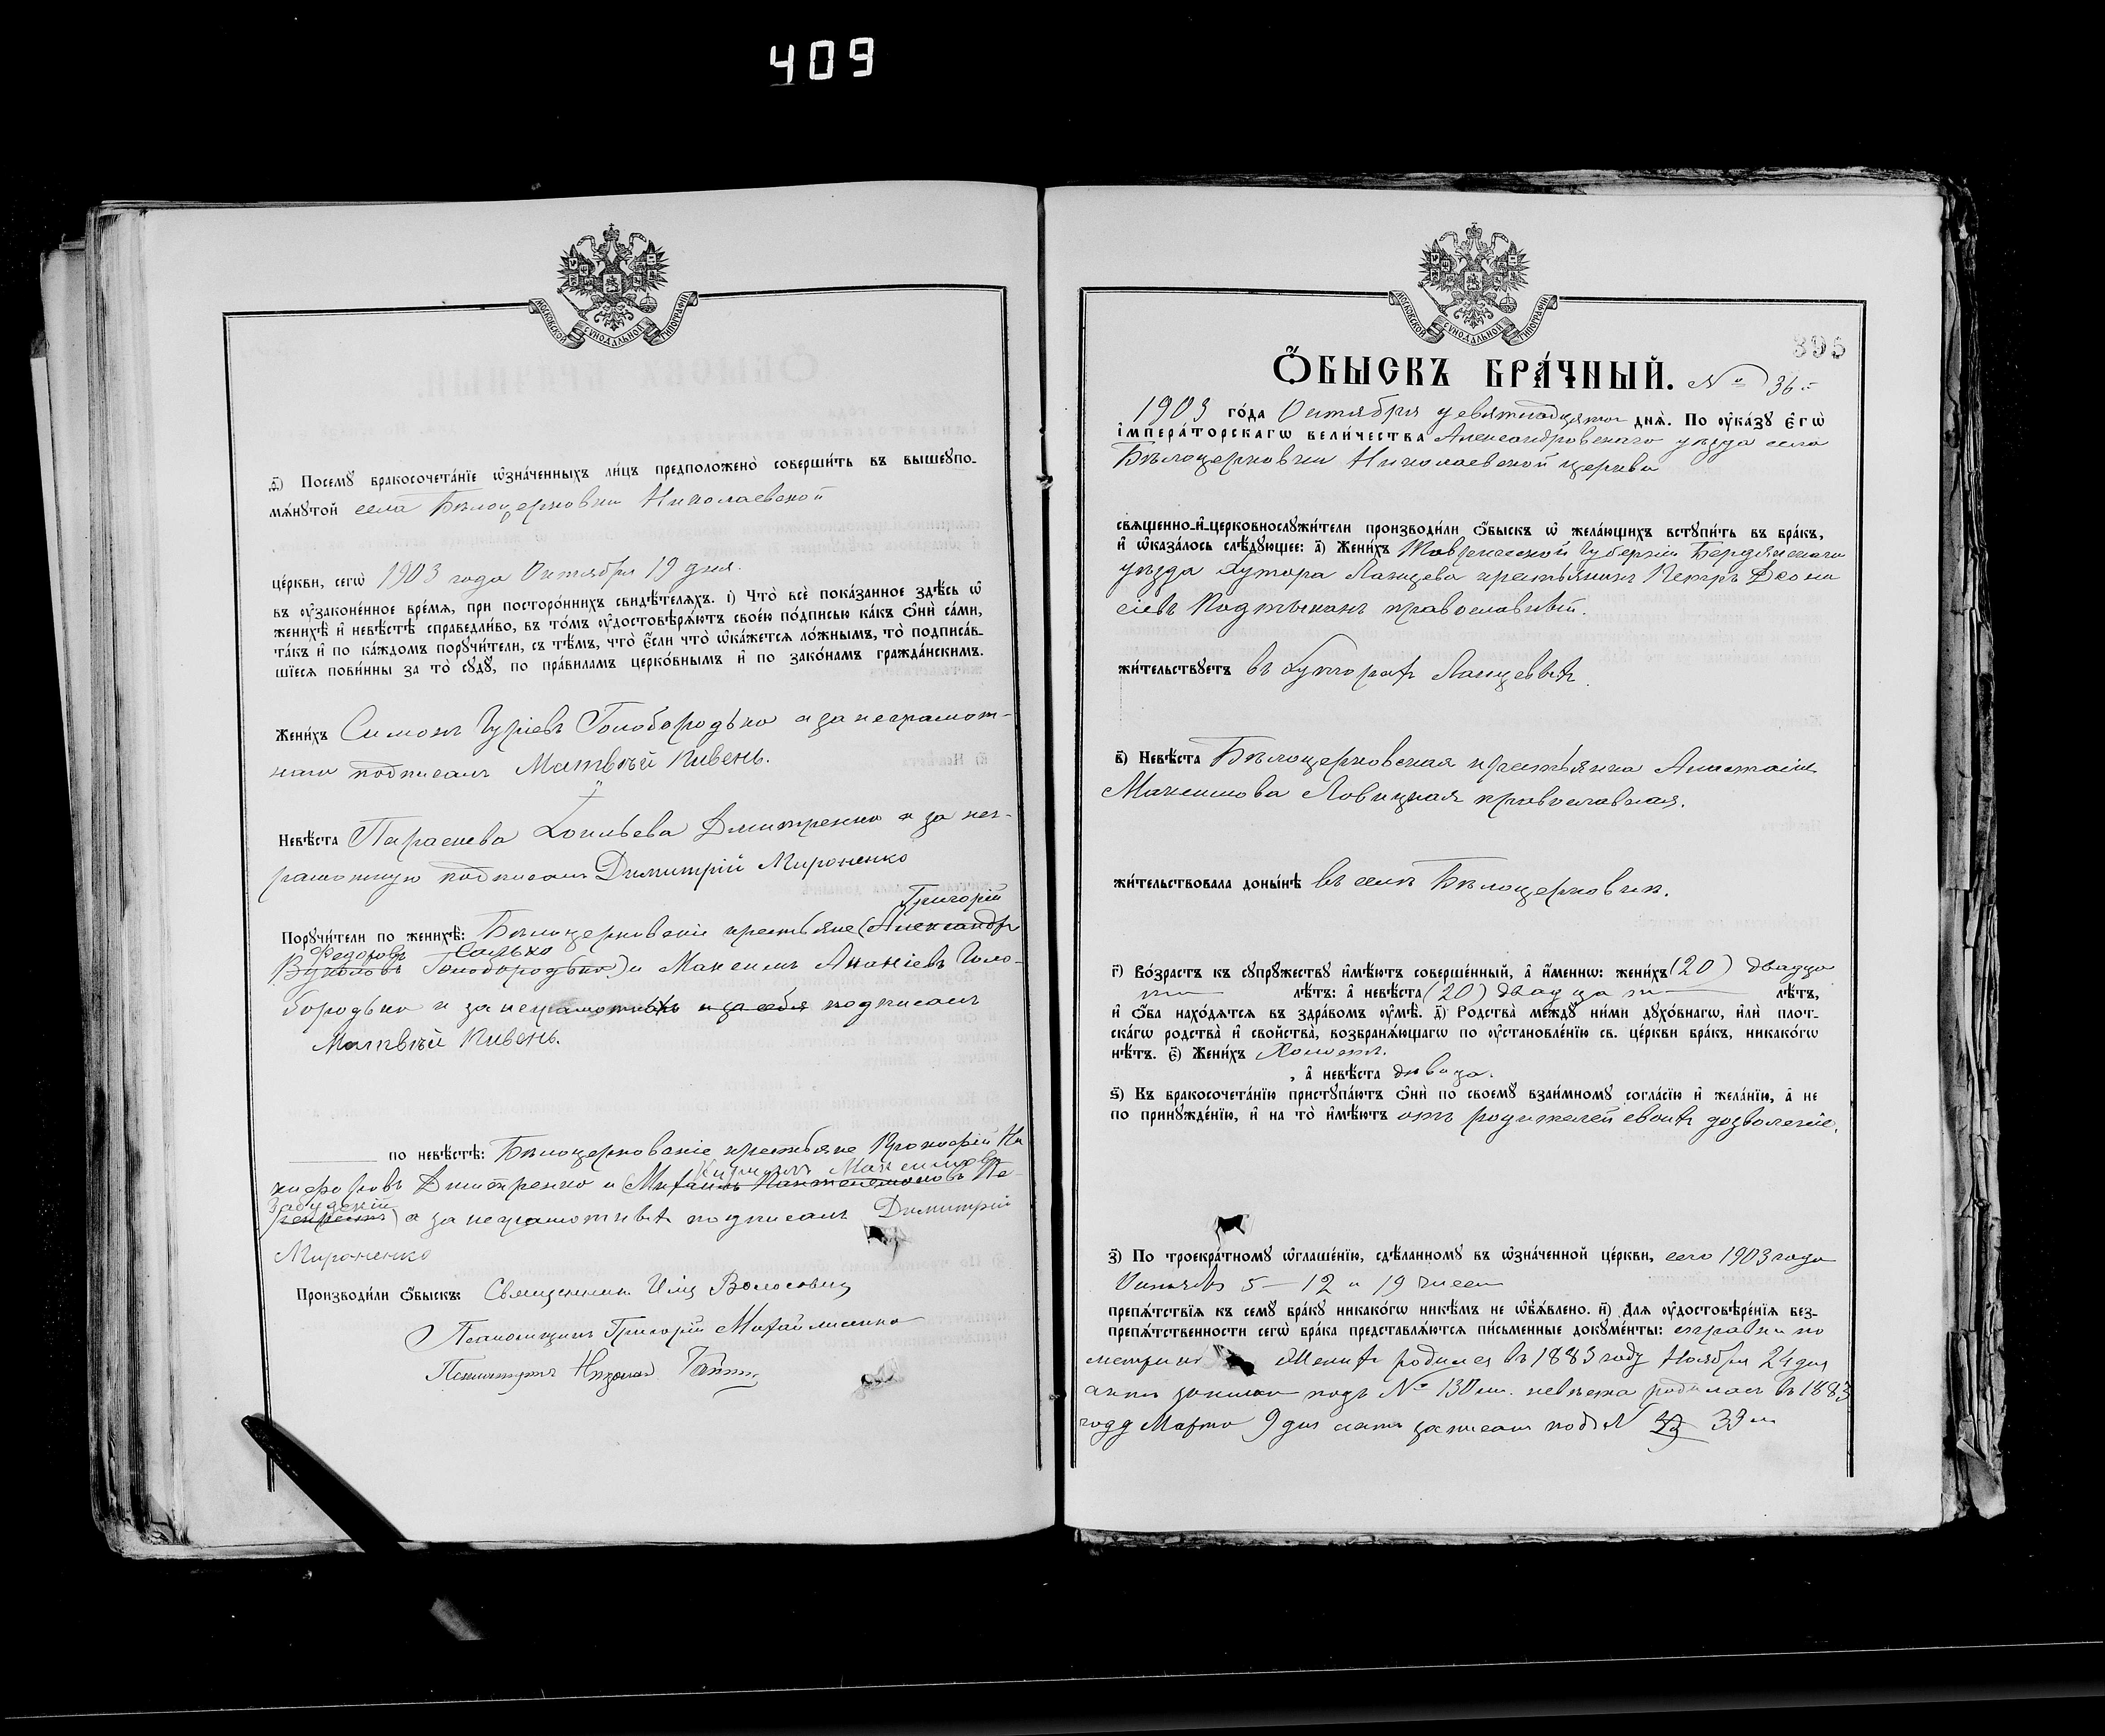 409
МОСКОВСКОЙ СѴНОДАЛЬНОЙ ТИПОГРАФІИ
ѳ҃) Посемꙋ̀ бракосочета́нїе ѡ҆зна́ченныхъ ли́цъ предположено̀ соверши́ть въ вышеꙋпо-
мѧ́нꙋтой села Бѣлоцерковки Николаевской
це́ркви, сегѡ̀ 1903 года Октября 19 дня.
въ ᲂу҆зако́не́нное вре́мѧ, при посторо́ннихъ свидѣ́телѧхъ. і҃) Что̀ всѐ пока́занное здѣ́сь ѡ҆
женихѣ̀ и҆ невѣ́стѣ справедли́во, въ то́мъ ᲂу҆достовѣрѧ́ютъ свое́ю по́дписью ка́къ ѻ҆нѝ са́ми,
та́къ и҆ по ка́ждомъ порꙋчи́тели, съ тѣ́мъ, что̀ є҆́сли что̀ ѡ҆ка́жетсѧ ло́жнымъ, то̀ подписа́в-
шїесѧ пови́нны за то̀ сꙋдꙋ̀, по пра́виламъ церко́внымъ и҆ по зако́намъ гражда́нскимъ.
Жени́хъ Симонъ Гуріевъ Голобородько а за неграмот-
наго подписалъ Матвѣй Кивень.
Невѣ́ста Параскева Дмитренко а за нег-
рамотную подписалъ Димитрій Мироненко
Григорій
Порꙋчи́тели по женихѣ̀: Бѣлоцерковскіе крестьяне (Александръ
Федоровъ Салько
Вуколовъ Голобородько) и Максимъ Ананіевъ Голо-
бородько а за неграмотныхъ и за себя подписалъ
Матвѣй Кивень.
по невѣ́стѣ: Бѣлоцерковскіе крестьяне Прокофій Ни
Максимовъ
кифоровъ Дмитренко и (Михаилъ Пантелемоновъ Пе-
Забудскій
а за неграмотныхъ подписалъ Димитрій
Мироненко
Производи́ли ѻ҆́быскъ: Священникъ Илія Волосовичъ
Псаломщикъ Григорій Михайличенко
Николай
МОСКОВСКОЙ СѴНОДАЛЬНОЙ ТИПОГРАФІИ
395
Ѻ҆́БЫСКЪ БРА́ЧНЫЙ. № 36.
1903 го́да Октября девятнадцатаго днѧ̀. По ᲂу҆ка́зꙋ Є҆гѡ̀
і҆мпера́торскагѡ вели́чества Александровскаго уѣзда села
Бѣлоцерковки Николаевской церкви
свѧщенно-и҆-церковнослꙋжи́тели производи́ли ѻ҆́быскъ ѡ҆ жела́ющихъ встꙋпи́ть въ бра́къ,
и҆ ѡ҆каза́лось слѣ́дꙋющее: а҃) Жени́хъ Таврической Губерніи Бердянскаго
уѣзда хутора Ланцева крестьянинъ Петръ Деони
сіевъ Подтыканъ православный.
жи́тельствꙋетъ въ хуторѣ Ланцевѣ
в҃) Невѣ́ста Бѣлоцерковская крестьянка Анастасія
Максимова Ловицкая православная.
жи́тельствовала доны́нѣ въ селѣ Бѣлоцерковкѣ.
г҃) Во́зрастъ къ сꙋпрꙋ́жествꙋ и҆мѣ́ютъ соверше́нный, а҆ и҆́меннѡ: жени́хъ (20) двадца
ти лѣ́тъ: а҆ невѣ́ста (20) двадцати лѣ́тъ,
и҆ ѻ҆́ба нахо́дѧтсѧ въ здра́вомъ ᲂу҆мѣ̀. д҃) Родства̀ ме́ждꙋ ни́ми дꙋхо́внагѡ, и҆лѝ плот-
ска́гѡ родства̀ и҆ сво́йства̀, возбранѧ́ющагѡ по ᲂу҆становле́нїю св. це́ркви бра́къ, никако́гѡ
нѣ́тъ. є҃) Жени́хъ Холостъ.
, а҆ невѣ́ста дѣвица.
ѕ҃) Къ бракосочета́нїю пристꙋпа́ютъ ѻ҆нѝ по своемꙋ̀ взаи́мномꙋ согла́сїю и҆ жела́нїю, а҆ не
по принꙋжде́нїю, и҆ на то̀ и҆мѣ́ютъ отъ родителей своихъ дозволеніе.
з҃) По троекра́тномꙋ ѡ҆глаше́нїю, сдѣ́ланномꙋ въ ѡ҆зна́ченной це́ркви, сего 1903 года
Октября 5 — 12 и 19 чиселъ
препѧ́тствїѧ къ семꙋ̀ бра́кꙋ никако́гѡ никѣ́мъ не ѡ҆б̾ѧ́влено. и҃) Длѧ ᲂу҆достовѣре́нїѧ без-
препѧ́тственности сегѡ̀ бра́ка представлѧ́ютсѧ пи́сьменные докꙋме́нты: справки по
метрик Женихъ родился въ 1883 году Ноября 24 дня
актъ записан подъ № 130 м. невѣста родилась въ 1883
году Марта 9 дня актъ записанъ подъ № 33